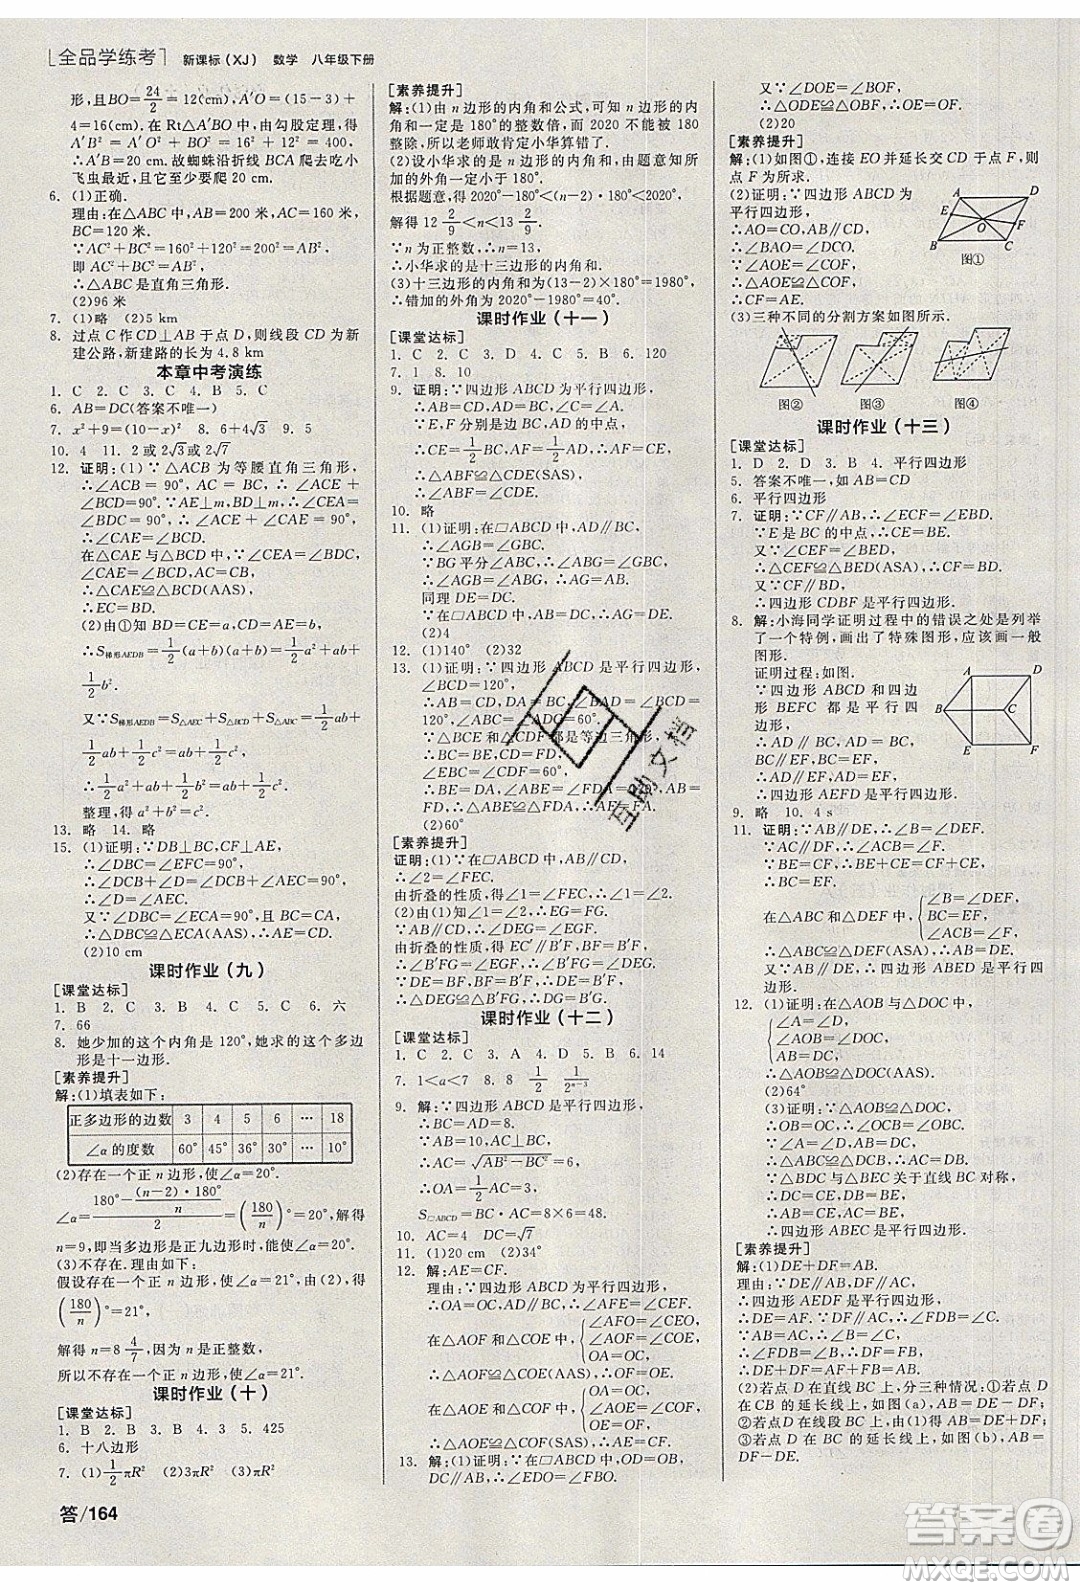 全品学练考 新课标(XJ) 数学 八年级下册
形,且BO=24/2=12(cm),A′O=(15-3)+
4=16(cm).在Rt△A′BO中,由勾股定理,得
A′B²=A′O²+BO²=16²+12²=400,所以
A′B=20 cm.故蜘蛛沿折线BCA爬去吃小
飞虫最近,且最近距离为20 cm.
6. (1)正确.
理由:在△ABC中,AB=200米,AC=160米,
BC=120米.
∵AC²+BC²=160²+120²=200²=AB²,
即AC²+BC²=AB²,
∴△ABC是直角三角形.
(2)96米
7. (1)略 (2)5 km
8. 过点C作CD⊥AB于点D,则线段CD为新
建公路,新建路的长为4.8 km
本章中考演练
1. C 2. C 3. C 4. B 5. C
6. AB=DC(答案不唯一)
7. x²+9=(10-x)² 8. 6+4√3 9. 5
10. 4 11. 2或2√3或2√7
12. 证明:(1)∵△ACB为等腰直角三角形,
∴∠ACE+
∠BCD=90°.∵AE⊥m,BD⊥m,∴∠AEC=
∠BDC=90°,∴∠ACE+∠CAE=90°,
∴∠CAE=∠BCD.
在△CAE与△BCD中,∵∠CAE=∠BCD,
∠AEC=∠CDB,AC=BC,
∴△CAE≌△BCD(AAS),
∴EC=BD.
(2)由①可知BD=CE=a,CD=AE=b,
∴S梯形AEDB=1/2(a+b)(a+b)=1/2a²+ab+
1/2b².
又∵S梯形AEDB=S△AEC+S△BCD+S△ABC=
1/2ab+1/2ab+1/2c²=ab+1/2c²,
∴1/2a²+ab+1/2b²=ab+1/2c²,
整理,得a²+b²=c².
13. 略 14. 略
15. (1)证明:∵DB⊥BC,CF⊥AE,
∴∠DCB+∠D=∠DCB+∠AEC=90°,
∴∠D=∠AEC.
又∵∠DBC=∠ECA=90°,且BC=CA,
∴△DBC≌△ECA(AAS),∴AE=CD.
(2)10 cm
课时作业(九)
[课堂达标]
1. B 2. C 3. B 4. C 5. C 6. 六
7. 66
8. 她少加的这个内角是120°,她求的这个多边
形是十一边形.
[素养提升]
解:(1)填表如下:
正多边形的边数 3 4 5 6 … 18
∠α的度数 60° 45° 36° 30° … 10°
(2)存在一个正n边形,使∠α=20°.
∠α=(180°-(n-2)·180°/n)/2=(180/n)°,∴(180/n)°=20°,解得
n=9,即当多边形是正九边形时,∠α=20°.
(3)不存在.理由如下:
假设存在一个正n边形,使∠α=21°,得
(180/n)°=21°,
解得n=8 4/7,因为n是正整数,
所以不存在一个正n边形,使∠α=21°.
课时作业(十)
[课堂达标]
1. B 2. B 3. B 4. 1800 5. 4
6. 十八边形
7. (1)1/2πR² (2)πR² (3)3/2πR²
答/164
[素养提升]
解:(1)由n边形的内角和公式,可知n边形的内
角和一定是180°的整数倍,而2020不能被180
整除,所以老师敢肯定小华算错了.
(2)设小华求的是n边形的内角和.依题意知这个
外角一定大于0°而小于180°.
根据题意,得2020°-180°<(n-2)·180°<2020°,
解得12 2/9<n<13 2/9.
∵n为正整数,∴n=13,
∴小华求的是十三边形的内角和.
(3)十三边形的内角和为(13-2)×180°=1980°,
∴错加的外角为2020°-1980°=40°.
课时作业(十一)
[课堂达标]
1. C 2. C 3. D 4. C 5. B 6. 120
7. 1 8. 10
9. 证明:∵四边形ABCD为平行四边形,
∴AB=CD,AD=BC,∠C=∠A.
∵E,F分别是边BC,AD的中点,
∴AF=1/2AD,CE=1/2BC,∴AF=CE,
∴△ABF≌△CDE(SAS),
∴∠ABF=∠CDE.
10. 略
11. (1)证明:在□ABCD中,AD∥BC,
∴∠AGB=∠CBG.
∵BG平分∠ABC,∴∠ABG=∠CBG,
∴∠ABG=∠AGB,∴AB=AG.
同理DE=DC.
∵在□ABCD中,AB=DC,∴AG=DE.
(2)4
12. (1)140° (2)32
13. (1)证明:∵四边形ABCD是平行四边形,
∠BCD=120°,
∴AB=CD,BC=AD,∠BAD=∠BCD=
120°,∠ABC=∠ADC=60°.
∵△BCE和△CDF都是等边三角形,
∴BE=BC,DF=CD,
∠EBC=∠CDF=60°,
∴∠ABE=∠FDA,AB=FD,BE=DA,
∴△ABE≌△FDA,∴AE=AF.
(2)60°
[素养提升]
证明:(1)∵在□ABCD中,AB∥CD,
∴∠2=∠FEC.
由折叠的性质,得∠1=∠FEC,∴∠1=∠2.
(2)由(1)知∠1=∠2,∴EG=FG.
∵AB∥CD,∴∠DEG=∠EGF.
由折叠的性质,得EC′∥B′F,BF=B′F,
∴∠B′FG=∠EGF,∴∠B′FG=∠DEG.
∵DE=BF,∴B′F=DE,
∴△DEG≌△B′FG(SAS).
课时作业(十二)
[课堂达标]
1. C 2. C 3. A 4. D 5. B 6. 14
7. 1<a<7 8. 8 1/2 1/2ⁿ⁻³
9. 解:∵四边形ABCD是平行四边形,
∴BC=AD=8.
∵AB=10,AC⊥BC,
∴AC=√(AB²-BC²)=6,
∴OA=1/2AC=3,
S□ABCD=BC·AC=8×6=48.
10. AC=4 DC=√7
11. (1)20 cm (2)34°
12. 解:AE=CF.
理由:∵四边形ABCD为平行四边形,
∴OA=OC,AD∥BC,∴∠AFO=∠CEO.
在△AOF和△COE中,
∠AFO=∠CEO,
∠AOF=∠COE,
OA=OC,
∴△AOF≌△COE(AAS),∴OF=OE.
在△AOE和△COF中,
OA=OC,
∠AOE=∠COF,
OE=OF,
∴△AOE≌△COF(SAS),∴AE=CF.
13. (1)证明:∵在□ABCD中,OD=OB,
DC∥AB,∴∠ODE=∠FBO.
又∵∠DOE=∠BOF,
∴△ODE≌△OBF(AAS).
(2)20
[素养提升]
解:(1)如图①,连接EO并延长交CD于点F,
点F为所求.
(2)证明:∵四边形ABCD为
平行四边形,
∴AO=CO,AB∥CD,
∴∠BAO=∠DCO.
∵∠AOE=∠COF,
∴△AOE≌△COF,
∴CF=AE.
A D E O F B C
图①
(3)三种不同的分割方案如图所示.
图② 图③ 图④
课时作业(十三)
[课堂达标]
1. D 2. D 3. B 4. 平行四边形
5. 答案不唯一,如AB=CD
6. 平行四边形
7. 证明:∵CF∥AB,∴∠ECF=∠EBD.
∵E是BC的中点,∴CE=BE.
又∵∠CEF=∠BED,
∴△CEF≌△BED(ASA),∴CF=BD.
又∵CF∥DB,
∴四边形CDBF是平行四边形.
8. 解:小海同学证明过程中的错误之处是列举
了一个特例,画出了特殊图形,应该画一般
图形.
证明过程:
∵四边形ABCD和四边
形BEFC都是平行四
边形,
∴AD∥BC,AD=BC,
EF∥BC,EF=BC,
∴AD∥EF,AD=EF,
∴四边形AEFD是平行四边形.
A D B C E F
9. 略 10. 4 s
11. 证明:∵AB∥DE,∴∠B=∠DEF.
∵AC∥DF,∴∠ACB=∠F.
∵BE=CF,∴BE+CE=CF+CE,
∴BC=EF.
在△ABC和△DEF中,
∠B=∠DEF,
BC=EF,
∠ACB=∠F,
∴△ABC≌△DEF(ASA),∴AB=DE.
又∵AB∥DE,
∴四边形ABED是平行四边形.
12. (1)证明:在△AOB与△DOC中,
∠A=∠D,
∠AOB=∠DOC,
OB=OC,
∴△AOB≌△DOC(AAS).
(2)64°
(3)证明:∵△AOB≌△DOC,
∴AB=DC,∠ABO=∠DCO.
∵∠A=∠D,
∴△ABE≌△DCE.
∵△BDC与△BEC关于直线BC对称,
∴DC=CE,DB=BE,
∴AB=CE,AC=BE,
∴四边形ABEC是平行四边形.
[素养提升]
解:(1)DE+DF=AB.
理由:∵DE∥AC,DF∥AB,
∴四边形AEDF是平行四边形,
∴DE=AF.∵DF∥AB,∴∠FDC=∠B.
又∵AB=AC,∴∠B=∠C,
∴∠FDC=∠C,∴DF=FC,
∴DE+DF=AF+FC=AC=AB.
(2)若点D在直线BC上,分三种情况:①若点D
在CB的延长线上,如图(a),AB=DF-DE;
②若点D在线段BC上,由(1)得AB=DE+DF;
③若点D在BC的延长线上,如图(b),AB=
DE-DF.
互助文档
答案圈
MXQE.COM